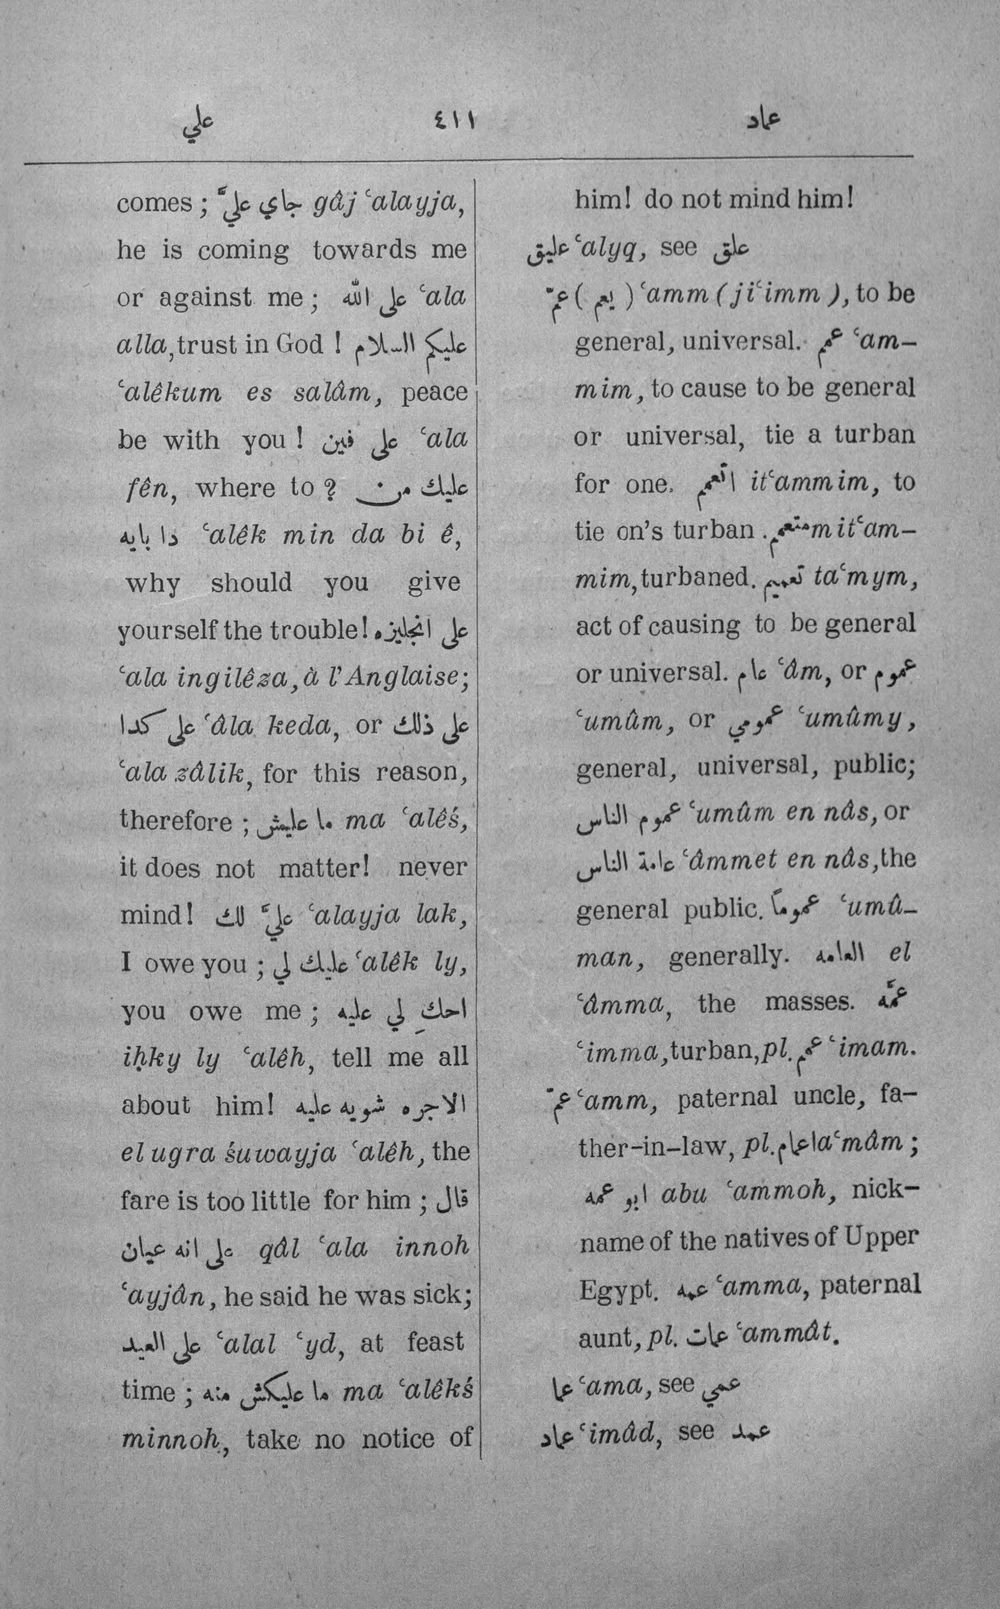 علي ٤١١ عماد
comes ; جاي عليَّ gâj ʿalayja,
he is coming towards me
or against me ; على الله ʿala
alla, trust in God ! عليكم السلام
ʿalêkum es salâm, peace
be with you ! على فين ʿala
fên, where to ? عليك من
دا بايه ʿalêk min da bi ê,
why should you give
yourself the trouble! على انجليزه
ʿala ingilêza, à l'Anglaise;
على كدا ʿâla keda, or على ذلك
ʿala zâlik, for this reason,
therefore ; ما عليش ma ʿalêś,
it does not matter! never
mind! عليَّ لك ʿalayja lak,
I owe you ; عليك لي ʿalêk ly,
you owe me ; احكِ لي عليه
iḥky ly ʿalêh, tell me all
about him! الاجره شويه عليه
el ugra śuwayja ʿalêh, the
fare is too little for him ; قال
على انه عيان qâl ʿala innoh
ʿayjân, he said he was sick;
على العيد ʿalal ʿyd, at feast
time ; ما عليكش منه ma ʿalêkś
minnoh, take no notice of
him! do not mind him!
عليق ʿalyq, see علق
عمّ ( يعم ) ʿamm ( jiʿimm ), to be
general, universal. عمم ʿam-
mim, to cause to be general
or universal, tie a turban
for one. اتعمم itʿammim, to
tie on's turban . متعمم mitʿam-
mim, turbaned. تعميم taʿmym,
act of causing to be general
or universal. عام ʿâm, or عموم
ʿumûm, or عمومي ʿumûmy,
general, universal, public;
عموم الناس ʿumûm en nâs, or
عامة الناس ʿâmmet en nâs, the
general public. عموماً ʿumû-
man, generally. العامه el
ʿâmma, the masses. عمَّه
ʿimma, turban, pl. عمم ʿimam.
عمّ ʿamm, paternal uncle, fa-
ther-in-law, pl. اعمام aʿmâm ;
ابو عمه abu ʿammoh, nick-
name of the natives of Upper
Egypt. عمه ʿamma, paternal
aunt, pl. عمات ʿammât.
عما ʿama, see عمي
عماد ʿimâd, see عمد